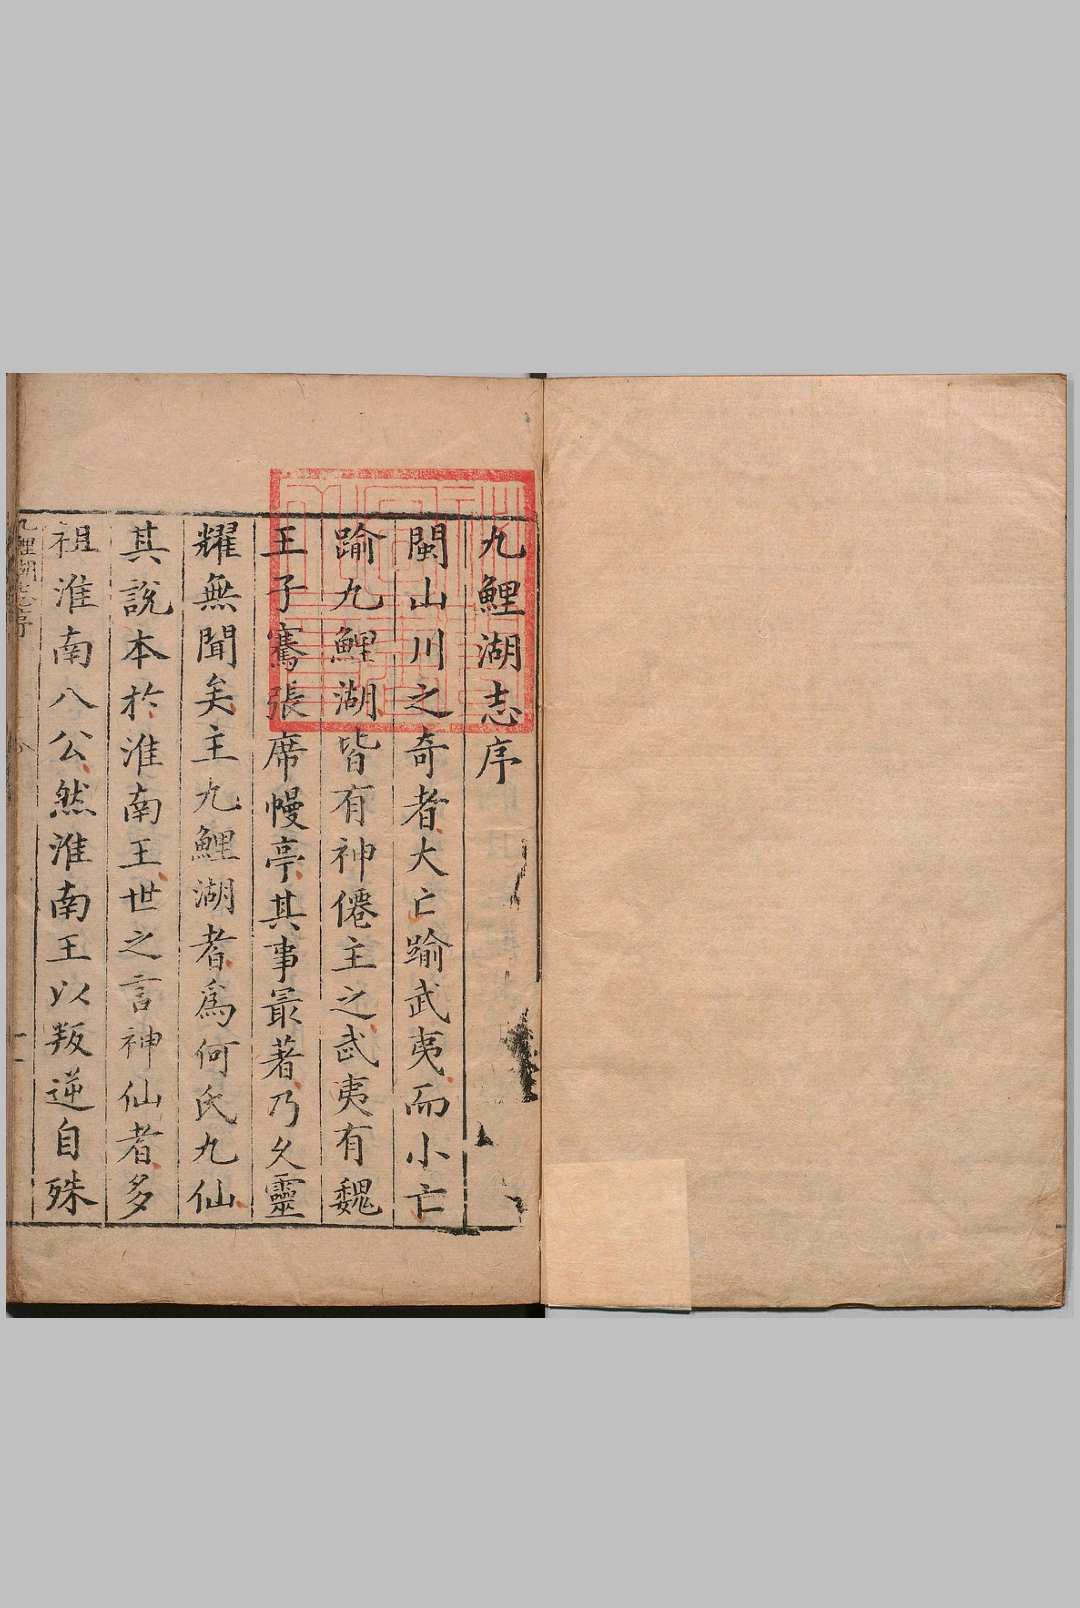 九鯉湖志序
閩山川之奇者大亡踰武夷而小亡
踰九鯉湖皆有神僊主之武夷有魏
王子騫張席幔亭其事最著乃久靈
耀無聞矣主九鯉湖者爲何氏九仙
其說本於淮南王世之言神仙者多
祖淮南八公然淮南王以叛逆自殊
九鯉湖志序